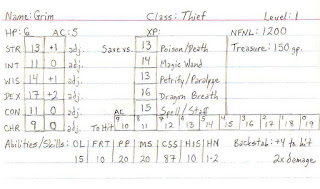 Name: Grim Class: Thief Level: 1
HP: 6 AC: 5 XP: NFNL: 1200
STR 13 +1 adj. Save vs. 13 Poison/Death Treasure: 150 gp.
INT 11 0 adj. 14 Magic Wand
WIS 14 +1 adj. 13 Petrify/Paralyze
DEX 17 +2 adj. 16 Dragon Breath
CON 11 0 adj. 15 Spell/Staff
CHR 9 0 adj. To Hit AC 9 10 8 11 7 12 6 13 5 14 4 15 3 16 2 17 1 18 0 19
Abilities/Skills: OL FRT PP MS CSS HIS HN Backstab: +4 to hit
15 10 20 20 87 10 1-2 2x damage